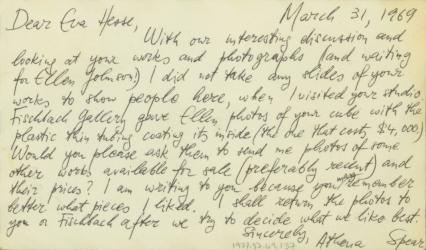 March 31, 1969
Dear Eva Hesse,
With our interesting discussion and
looking at your works and photographs (and waiting
for Ellen Johnson!) I did not take any slides of your
works to show people here, when I visited your studio.
Fischbach Gallery gave Ellen photos of your cube with the
plastic thin tubing coating its inside (the one that costs $4,000.)
Would you please ask them to send me photos of some
other works available for sale (preferably recent) and
their prices? I am writing to you because you may remember
better what pieces I liked. I shall return the photos to
you or Fischbach after we try to decide what we like best.
Sincerely,
Athena Spear